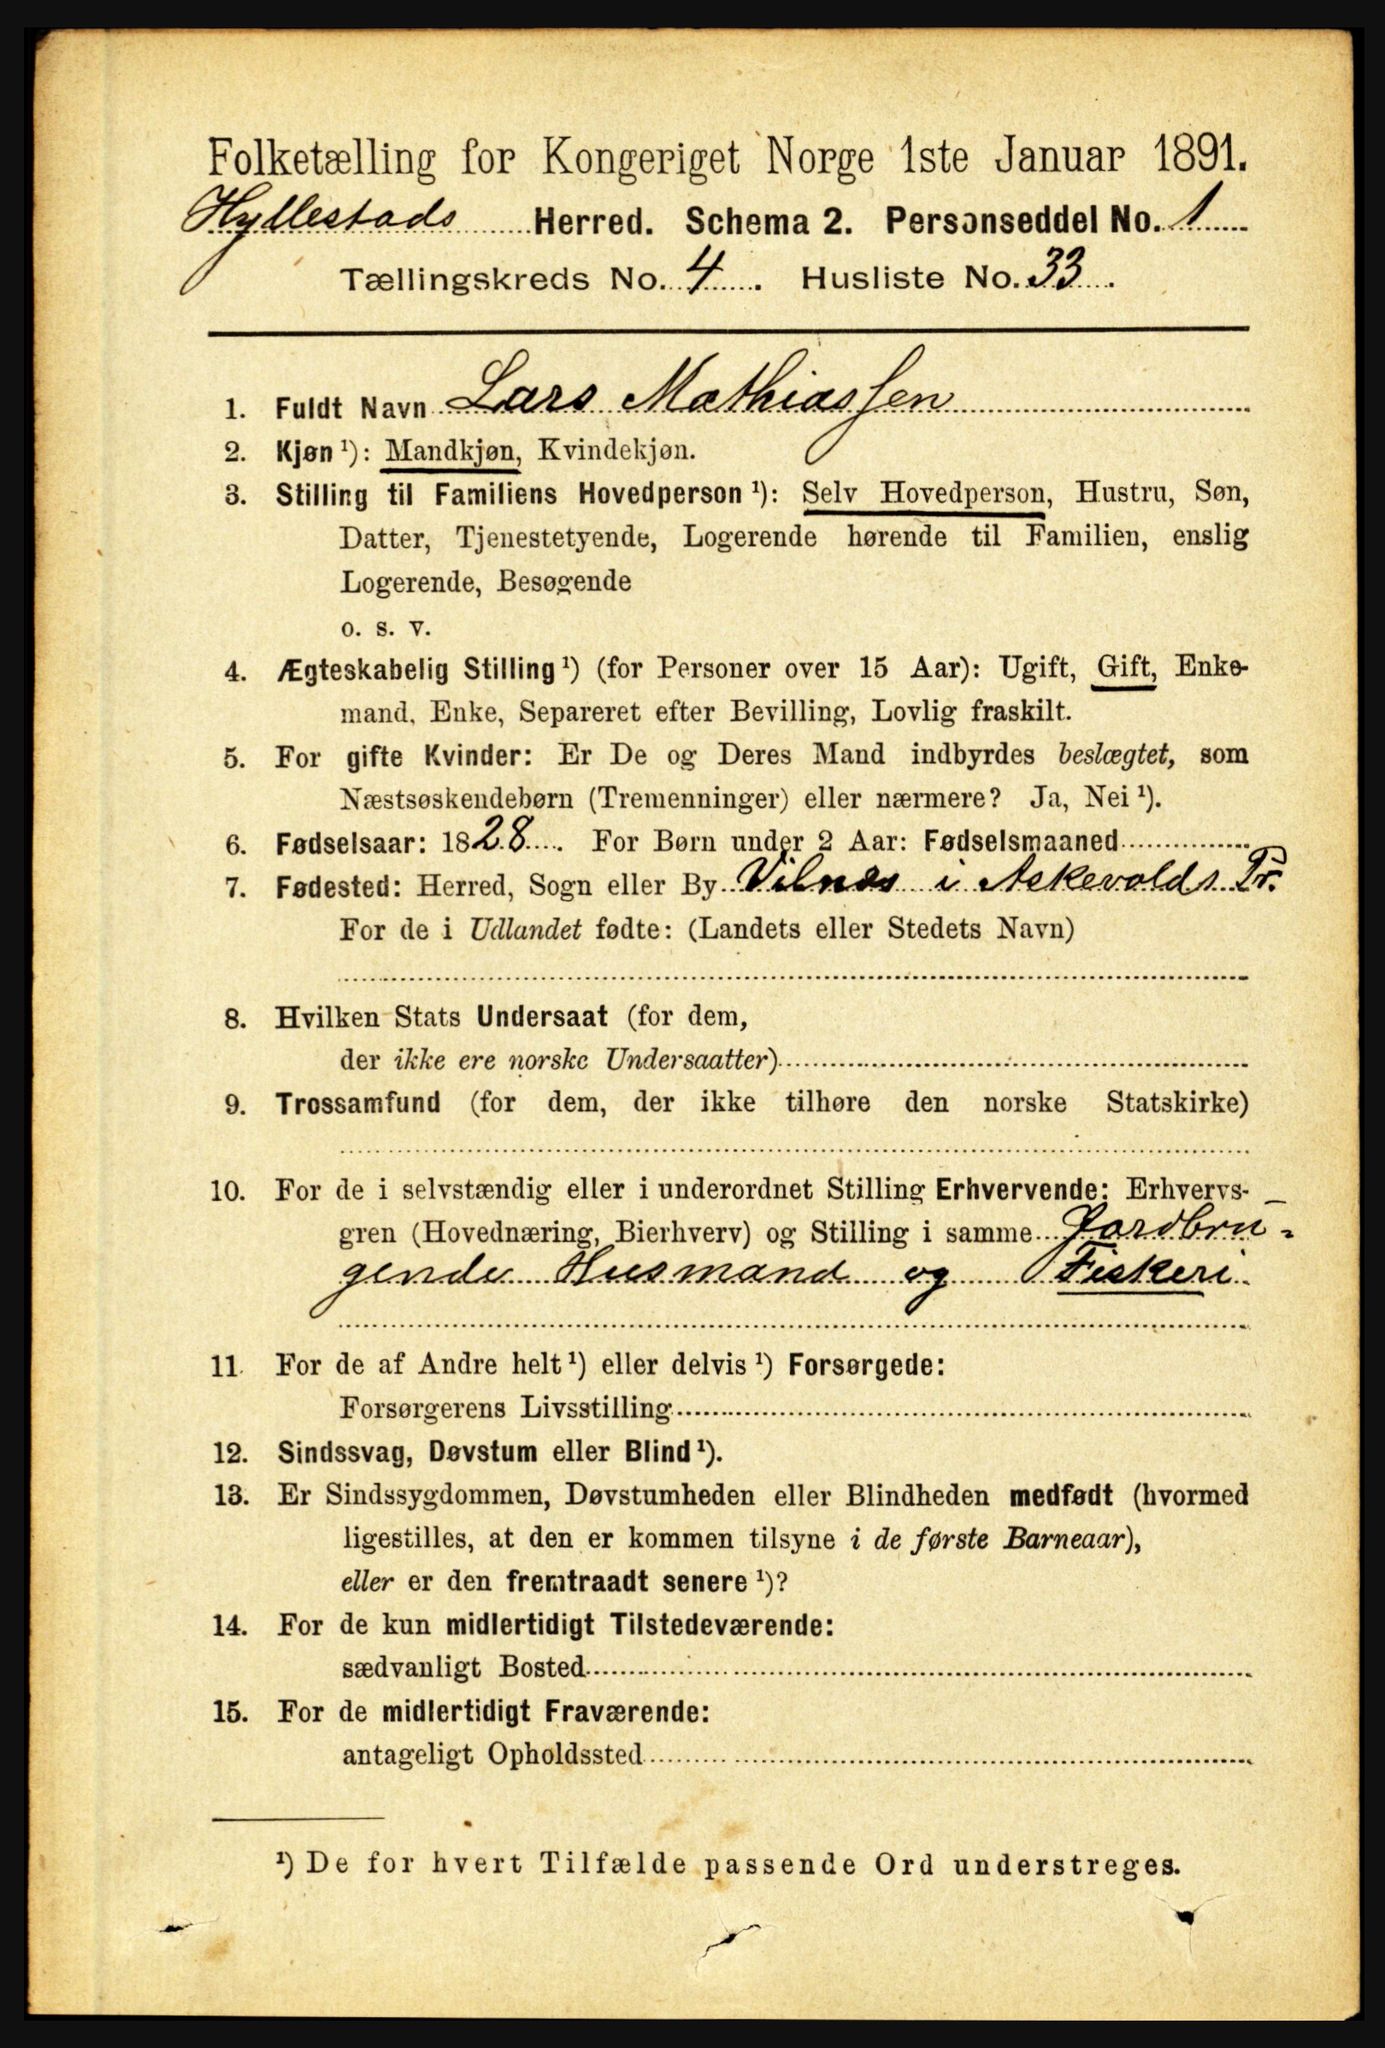 Folketælling for Kongeriget Norge 1ste Januar 1891.
Hyllestads Herred. Schema 2. Personseddel No. 1
Tællingskreds No. 4. Husliste No. 33.
1. Fuldt Navn Lars Mathiassen
2. Kjøn ¹): Mandkjøn, Kvindekjøn.
3. Stilling til Familiens Hovedperson ¹): Selv Hovedperson, Hustru, Søn,
Datter, Tjenestetyende, Logerende hørende til Familien, enslig
Logerende, Besøgende
o. s. v.
4. Ægteskabelig Stilling ¹) (for Personer over 15 Aar): Ugift, Gift, Enke-
mand, Enke, Separeret efter Bevilling, Lovlig fraskilt.
5. For gifte Kvinder: Er De og Deres Mand indbyrdes beslægtet, som
Næstsøskendebørn (Tremenninger) eller nærmere? Ja, Nei ¹).
6. Fødselsaar: 1828. For Børn under 2 Aar: Fødselsmaaned
7. Fødested: Herred, Sogn eller By Vilnæs i Askevolds Pr.
For de i Udlandet fødte: (Landets eller Stedets Navn)
8. Hvilken Stats Undersaat (for dem,
der ikke ere norske Undersaatter)
9. Trossamfund (for dem, der ikke tilhøre den norske Statskirke)
10. For de i selvstændig eller i underordnet Stilling Erhvervende: Erhvervs-
gren (Hovednæring, Bierhverv) og Stilling i samme Jordbru-
gende Husmand og Fiskeri
11. For de af Andre helt ¹) eller delvis ¹) Forsørgede:
Forsørgerens Livsstilling
12. Sindssvag, Døvstum eller Blind ¹).
13. Er Sindssygdommen, Døvstumheden eller Blindheden medfødt (hvormed
ligestilles, at den er kommen tilsyne i de første Barneaar),
eller er den fremtraadt senere ¹)?
14. For de kun midlertidigt Tilstedeværende:
sædvanligt Bosted
15. For de midlertidigt Fraværende:
antageligt Opholdssted
¹) De for hvert Tilfælde passende Ord understreges.